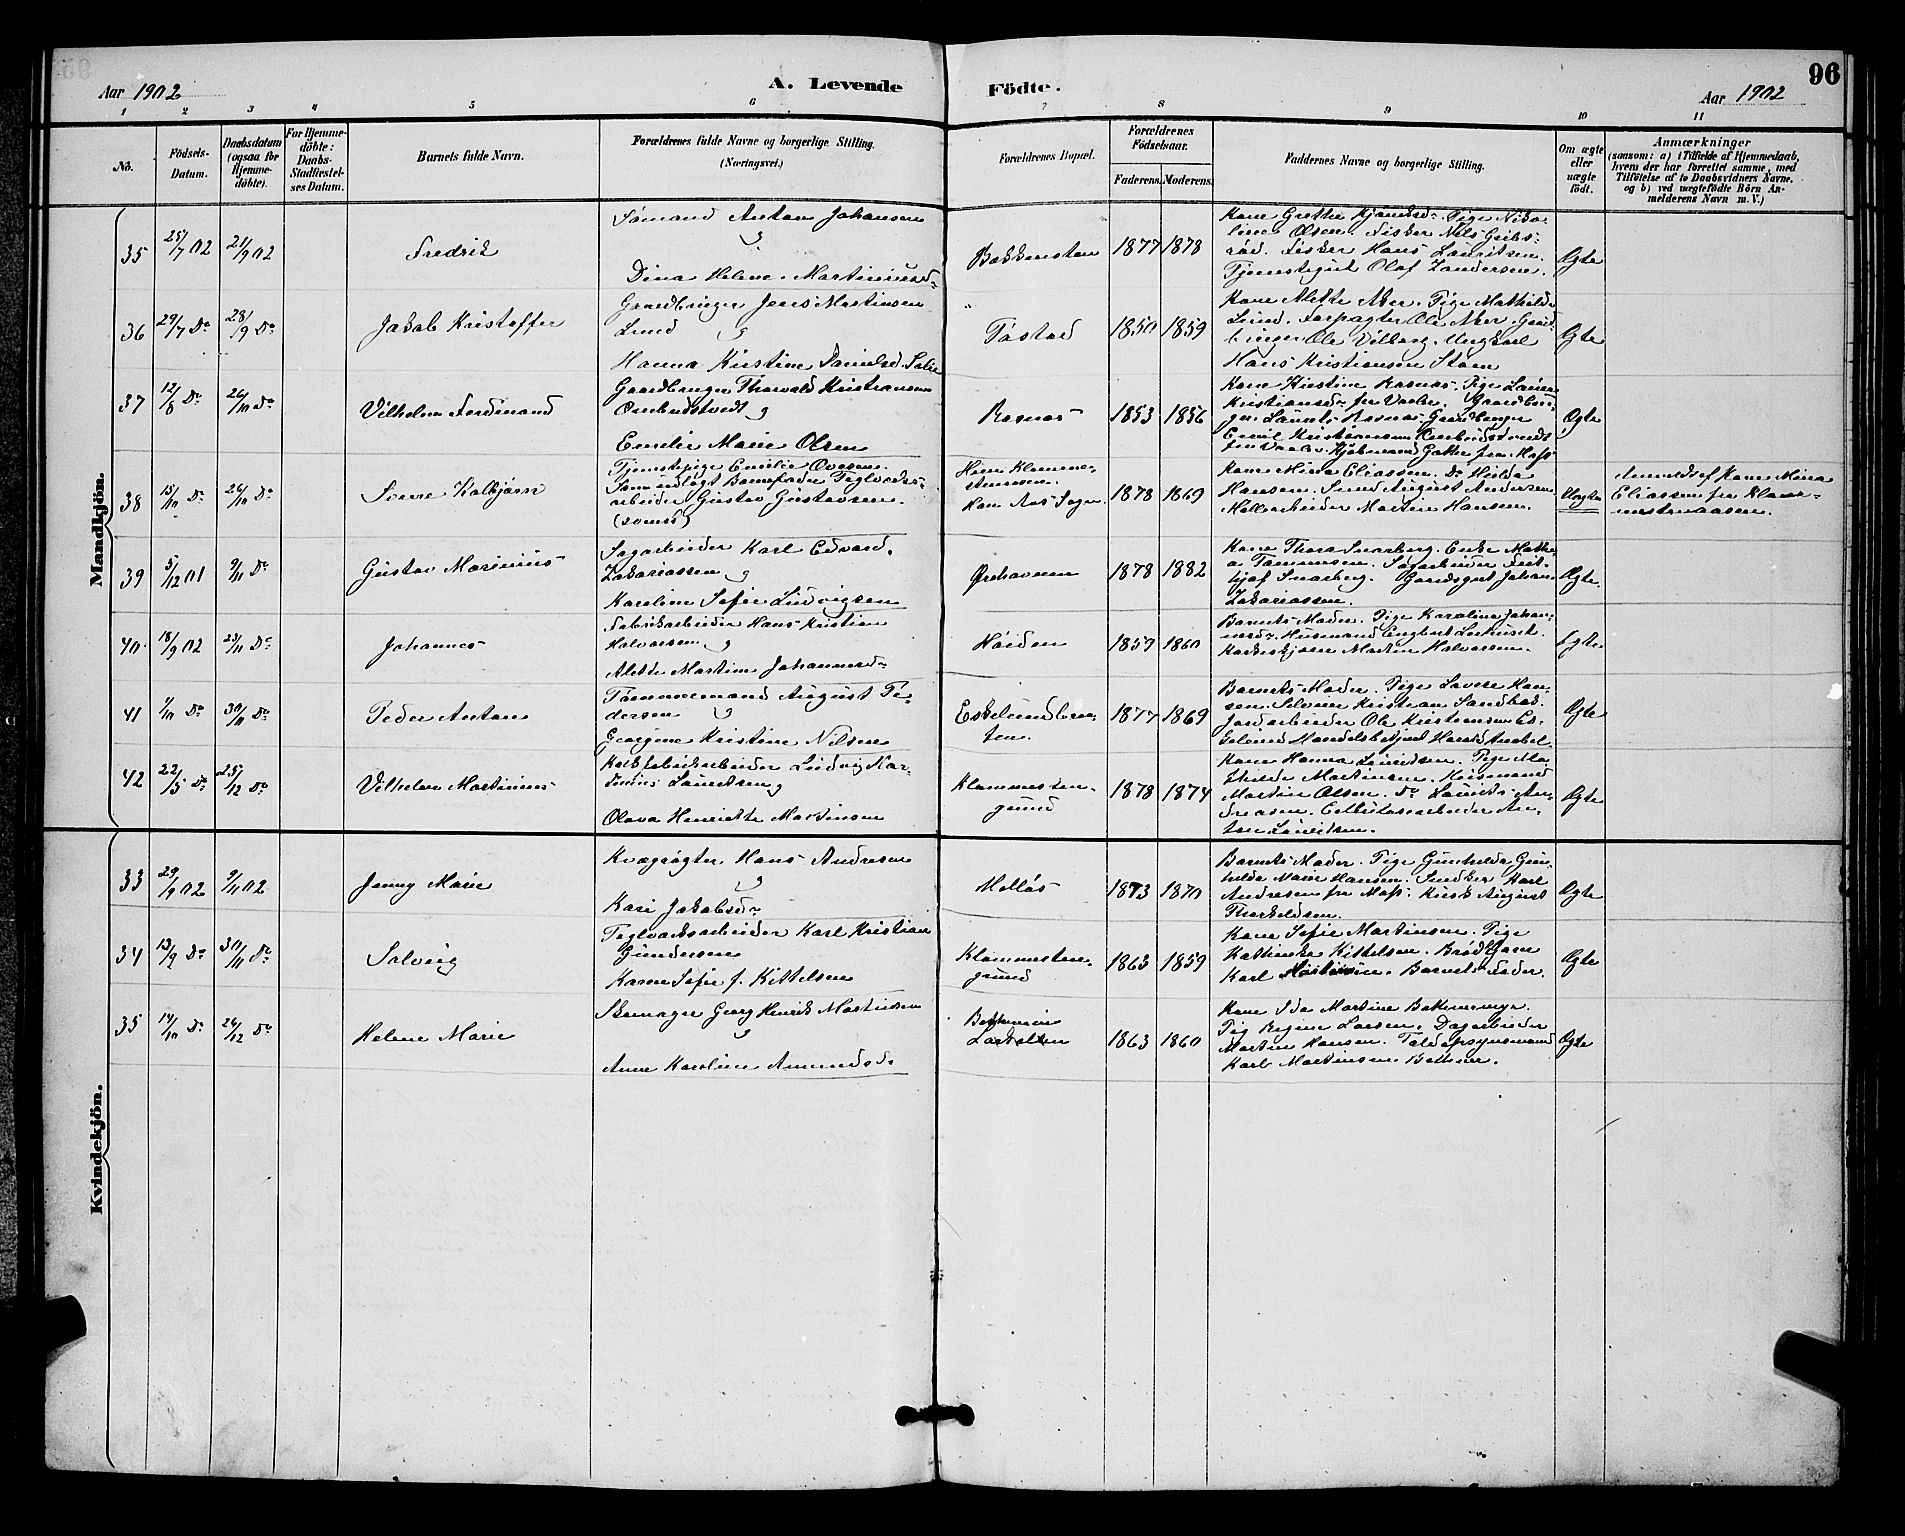 96
Aar 1902
A. Levende
Födte.
Aar 1902
1 2 3 4 5 6 7 8 9 10 11
No.
Födsels-
Datum.
Daabsdatum
(ogsaa for
Hjemme-
döbte).
For Hjemme-
döbte:
Daabs-
Stadfæstel-
ses Datum.
Barnets fulde Navn.
Forældrenes fulde Navne og borgerlige Stilling.
(Næringsvei.)
Forældrenes Bopæl.
Forældrenes
Födselsaar.
Faderens.
Moderens.
Faddernes Navne og borgerlige Stilling.
Om ægte
eller
uægte
födt.
Anmærkninger
(saasom: a) i Tilfælde af Hjemmedaab,
hvem der har forrettet samme, med
Tilföielse af to Daabsvidners Navne,
og b) ved uægtefödte Börn An-
melderens Navn m. V.)
Mandkjön.
35
25/7 02
21/9 02
Fredrik
Sømand Anton Johansen
g
Dina Helene Martiniusd.
Bakkensten
1877
1878
Tige Niko-
line Olsen. Fisker Nils
Fisker Hans Lauritsen.
Tjenstegut Olaf Zandersen.
Ægte
36
29/7 Do
28/9 Do
Jakob Kristoffer
Gaardbruger Jens Martinsen
Lund g
Hanna Kristine
Tostad
1850
1859
Kone Alette Aker. Pige Mathilde
Lund. Forpagter Ole Aker. Gaard-
bruger Ole Ungkarl
Hans Kristiansen
Ægte
37
12/8 Do
26/10 Do
Vilhelm Ferdinand
Gaardbruger Thorvald Kristiansen
Ombudstvedt g
Emilie Marie Olsen
Rosnæs
1853
1856
Kone Kristine Rosnæs. Pige Laura
Kristiansdr fra Vaaler. Gaardbru-
ger Laurits Rosnæs Gaardbruger
Emil Kristiansen Ombudstvedt
fra Moss
Ægte
38
15/10 Do
26/10 Do
Sverre Kolbjørn
Tjenstepige Emilie Ovesen.
Barnefader Teglværks-
arbeider Gustav Gustavsen.
Hun Klomme-
Han Aas Sogn
1878
1869
Kone Mina Eliassen. Do Hilda
Hansen. Smed August Andersen
Møllearbeider Martin Hansen.
Uægte
Anmeldt af Kone Mina
Eliassen fra Klom-
mestenaasen.
39
5/12 01
9/11 Do
Gustav Marinius
Sagarbeider Karl Edvard
Zakariassen g
Karoline Sofie Ludvigsen
Ørehavnen
1878
1882
Kone Thora Snarberg. Enke Mathe-
a Tommesen. Sagarbeider Frit-
hjof Snarberg. Gaardsgut Johan
Zakariassen.
Ægte
40
18/9 02
23/11 Do
Johannes
Fabrikarbeider Hans Kristian
Halvorsen g
Alette Martine Johannesd.
Høiden
1859
1860
Barnets Moder. Pige Karoline Johan-
nesdr. Husmand Engbret
Martin Halvorsen.
Ægte
41
1/10 Do
30/11 Do
Peder Anton
Tømmermand August Pe-
dersen g
Georgine Kristine Nilsen
Eskelundbra-
ten.
1877
1869
Barnets Moder. Pige Lovise Han-
sen. Kristian Sandbæk.
Jordarbeider Ole Kristiansen Es-
kelund Handelsbetjent
Ægte
42
22/5 Do
25/12 Do
Vilhelm Martinius
Ludvig Mar-
tinius Lauritsen g
Olava Henriette Martinsen
Klommesten-
grund
1878
1874
Kone Hanna Lauridsen. Pige Ma-
thilde Martinsen. Husmand
Martin Olsen. Do Laurits An-
dreasen. Cellulosearbeider An-
ton Lauridsen.
Ægte
Kvindekjön.
33
29/9 02
9/11 02
Jenny Marie
Kvægrøgter Hans Andresen
g
Kari Jakobsdr
Melløs
1873
1870
Barnets Moder. Pige Gunhilda Gun-
hilda Marie Hansen. Snedker Karl
Andresen fra Moss. Kusk August
Thorkeldsen.
Ægte
34
13/9 Do
30/11 Do
Solveig
Teglværksarbeider Karl Kristian
Gundersen
Karen Sofie f. Kittelsen
Klommesten-
grund
1863
1859
Kone Sofie Martinsen. Pige
Kathinka Kittelsen.
Karl Barnets Fader.
Ægte
35
14/10 Do
26/12 Do
Helene Marie
Skomager Georg Henrik Martinsen
g
Anne Karoline Amundsd.
1863
1860
Kone Ida Martine Bakkemyr.
Pige Regine Larsen. Dagarbeider
Martin Hansen. Toldopsynsmand
Karl Martinsen
Ægte